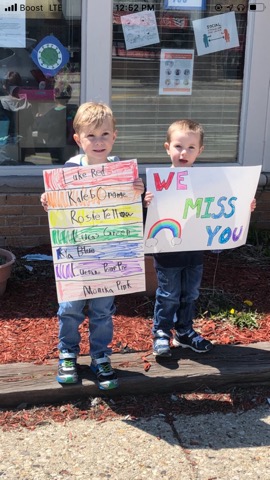 Boost LTE 12:52 PM
Luke Red
Kaleb Orange
Rosie Yellow
Green
Blue
Purple
Monika Pink
WE
MISS
YOU